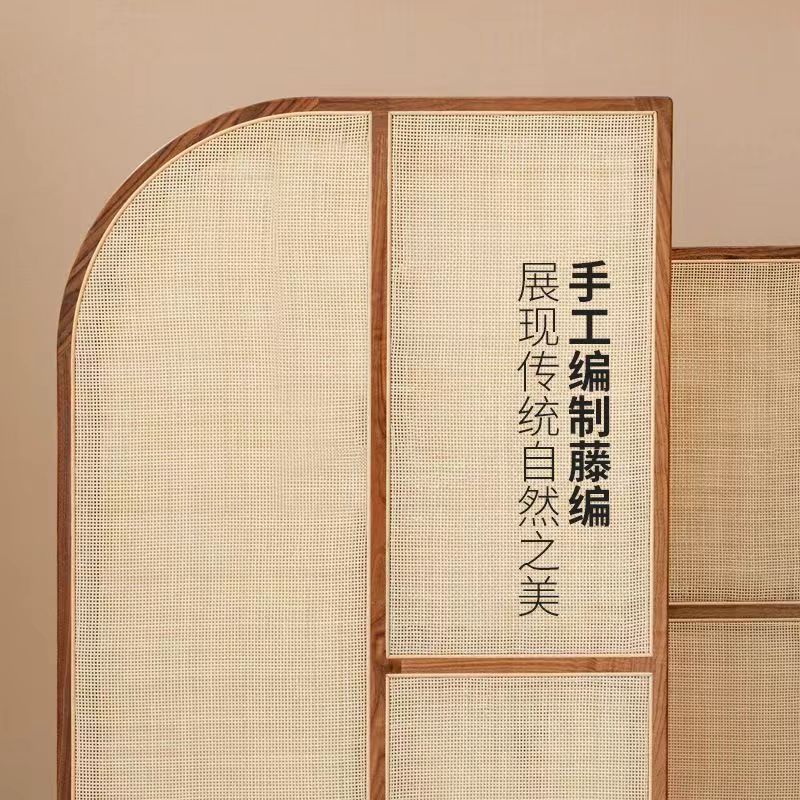 手工编制藤编
展现传统自然之美